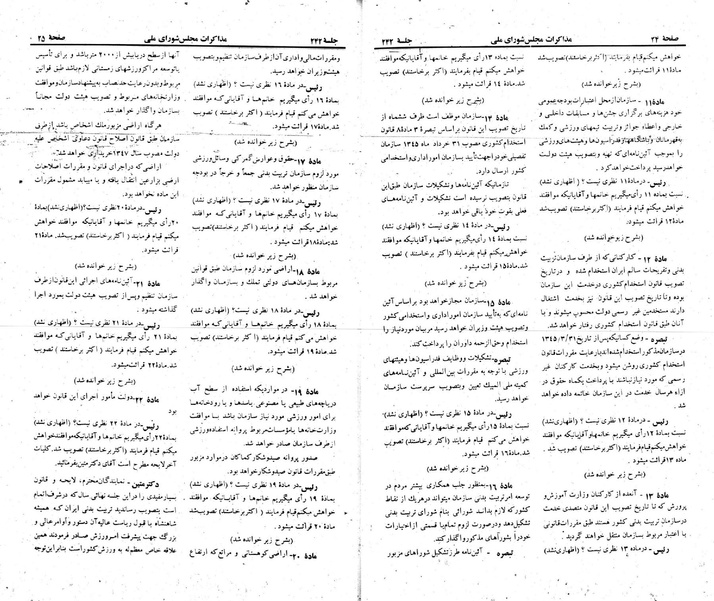 صفحهٔ ۲۴
مذاکرات مجلس شورای ملی
جلسهٔ ۲۴۲
خواهش میکنم قیام بفرمایند (اکثر برخاستند) تصویب شد
مادهٔ ۱۱ قرائت میشود.
(بشرح زیر خوانده شد)
مادهٔ ۱۱- سازمان از محل اعتبارات بودجه عمومی
خود هزینه‌های برگزاری جشن‌ها و مسابقات داخلی و
خارجی و اعطاء جوائز و تربیت تیمهای ورزشی و کمک
به قهرمانان و باشگاهها و فدراسیون‌ها و هیئت‌های ورزشی
را بموجب آئین‌نامه‌ای که تهیه و بتصویب هیئت دولت
خواهد رسید پرداخت خواهد کرد.
رئیس- در مادهٔ ۱۱ نظری نیست؟ (اظهاری نشد)
نسبت بماده ۱۱ رأی میگیریم خانمها و آقایانیکه موافقند
خواهش میکنم قیام فرمایند (اکثر برخاستند) تصویب شد.
مادهٔ ۱۲ قرائت میشود.
(بشرح زیر خوانده شد)
مادهٔ ۱۲- کارکنانی که از طرف سازمان تربیت
بدنی و تفریحات سالم ایران استخدام شده و در تاریخ
تصویب قانون استخدام کشوری در خدمت این سازمان
بوده و تا تاریخ تصویب این قانون نیز بخدمت اشتغال
دارند مستخدمین غیر رسمی دولت محسوب میشوند و با
آنان طبق قانون استخدام کشوری رفتار خواهد شد.
تبصره- وضع کسانیکه پس از تاریخ ۱۳۴۵/۳/۳۱
در سازمان مذکور استخدام شده‌اند با رعایت مقررات قانون
استخدام کشوری روشن میشود و بخدمت کارکنان غیر
رسمی که مورد نیاز نباشند با پرداخت یکماه حقوق در
ازاء هر سال خدمت در این سازمان خاتمه داده خواهد
شد.
رئیس- در مادهٔ ۱۲ نظری نیست؟ (اظهاری نشد)
نسبت بمادهٔ ۱۲ رأی میگیریم خانمها و آقایانیکه موافقند
خواهش میکنم قیام فرمایند (اکثر برخاستند) تصویب شد.
ماده ۱۳ قرائت میشود.
(بشرح زیر خوانده شد)
مادهٔ ۱۳- آنعده از کارکنان وزارت آموزش و
پرورش که تا تاریخ تصویب این قانون متصدی خدمت
در سازمان تربیت بدنی کشور هستند طبق مقررات قانونی
با اعتبار مربوط بسازمان منتقل خواهند گردید.
رئیس- در مادهٔ ۱۳ نظری نیست؟ (اظهاری نشد)
نسبت بماده ۱۳ رأی میگیریم خانمها و آقایانیکه موافقند
خواهش میکنم قیام بفرمایند (اکثر برخاستند) تصویب
شد. ماده ۱۴ قرائت میشود.
(بشرح زیر خوانده شد)
مادهٔ ۱۴- سازمان موظف است ظرف ششماه از
تاریخ تصویب این قانون براساس تبصره ۳ ماده ۸ قانون
استخدام کشوری مصوب ۳۱ خرداد ماه ۱۳۴۵ سازمان
تفصیلی خود را جهت تأیید سازمان امور اداری و استخدامی
کشور ارسال دارد.
تا زمانیکه آئین‌نامه‌ها و تشکیلات سازمان طبق این
قانون بتصویب نرسیده است تشکیلات و آئین‌نامه‌های
فعلی بقوت خود باقی خواهد بود.
رئیس- در مادهٔ ۱۴ نظری نیست؟ (اظهاری نشد)
نسبت بمادهٔ ۱۴ رأی میگیریم خانمها و آقایانیکه موافقند
خواهش میکنم قیام فرمایند (اکثر برخاستند) تصویب
شد. ماده ۱۵ قرائت میشود.
(بشرح زیر خوانده شد)
مادهٔ ۱۵- سازمان مجاز خواهد بود براساس آئین
نامه‌ای که به تأیید سازمان امور اداری و استخدامی کشور
و تصویب هیئت وزیران خواهد رسید مربیان مورد نیاز را
استخدام و حق‌الزحمه داوران را پرداخت کند.
تبصره- تشکیلات و وظایف فدراسیون‌ها و هیئتهای
ورزشی با توجه به مقررات بین‌المللی و آئین‌نامه‌های
کمیته ملی المپیک تعیین و بتصویب سرپرست سازمان
خواهد رسید.
رئیس- در مادهٔ ۱۵ نظری نیست؟ (اظهاری نشد)
نسبت بمادهٔ ۱۵ رأی میگیریم خانمها و آقایانیکه موافقند
خواهش می کنم قیام فرمایند (اکثر برخاستند) تصویب
شد. مادهٔ ۱۶ قرائت میشود.
(بشرح زیر خوانده شد)
مادهٔ ۱۶- بمنظور جلب همکاری بیشتر مردم در
توسعه امر تربیت بدنی سازمان میتواند در هریک از نقاط
کشور که لازم بداند شورائی بنام شورای تربیت بدنی
تشکیل دهد و در صورت لزوم تمام یا قسمتی از اختیارات
خود را بشورای مذکور واگذار کند.
تبصره - آئین‌نامه طرز تشکیل شوراهای مزبور
جلسهٔ ۲۴۲
مذاکرات مجلس شورای ملی
صفحهٔ ۲۵
و مقررات مالی و اداری آن از طرف سازمان تنظیم و بتصویب
هیئت وزیران خواهد رسید.
رئیس- در مادهٔ ۱۶ نظری نیست؟ (اظهاری نشد)
بمادهٔ ۱۶ رأی میگیریم خانم‌ها و آقایانیکه موافقند
خواهش میکنم قیام فرمایند (اکثر برخاستند) تصویب
شد. ماده ۱۷ قرائت میشود.
(بشرح زیر خوانده شد)
مادهٔ ۱۷- حقوق و عوارض گمرکی وسائل ورزشی
مورد لزوم سازمان تربیت بدنی جمعاً و خرجاً در بودجه
سازمان منظور خواهد شد.
رئیس- در مادهٔ ۱۷ نظری نیست؟ (اظهاری نشد)
بمادهٔ ۱۷ رأی میگیریم خانم‌ها و آقایانیکه موافقند
خواهش میکنم قیام فرمایند (اکثر برخاستند) تصویب
شد. ماده ۱۸ قرائت میشود.
(بشرح زیر خوانده شد)
مادهٔ ۱۸- اراضی مورد لزوم سازمان طبق قوانین
مربوط بسازمان‌های دولتی تملک و بسازمان واگذار
خواهد شد.
رئیس- در مادهٔ ۱۸ نظری نیست؟ (اظهاری نشد)
بمادهٔ ۱۸ رأی میگیریم خانم‌ها و آقایانیکه موافقند
خواهش میکنم قیام فرمایند (اکثر برخاستند) تصویب
شد. مادهٔ ۱۹ قرائت میشود.
(بشرح زیر خوانده شد)
مادهٔ ۱۹- در مواردیکه استفاده از سطح آب
دریاچه‌های طبیعی یا مصنوعی یا سدها و یا رودخانه‌ها
برای امور ورزشی مورد نیاز سازمان باشد با موافقت
وزارت‌خانه‌ها یا مؤسسات مربوط پروانه استفاده ورزشی
از طرف سازمان صادر خواهد شد.
صدور پروانه صید و شکار کماکان در موارد مزبور
طبق مقررات قانون صید و شکار خواهد بود.
رئیس- در مادهٔ ۱۹ نظری نیست؟ (اظهاری نشد)
بمادهٔ ۱۹ رأی میگیریم خانم‌ها و آقایانیکه موافقند
خواهش میکنم قیام فرمایند (اکثر برخاستند) تصویب شد
مادهٔ ۲۰ قرائت میشود.
(بشرح زیر خوانده شد)
مادهٔ ۲۰- اراضی کوهستانی و مراتع که ارتفاع
آنها از سطح دریا بیش از ۲۰۰۰ متر باشد و برای تأسیس
یا توسعه مراکز ورزشهای زمستانی لازم باشد طبق قوانین
مربوط و بدون رعایت حد نصاب به پیشنهاد سازمان و موافقت
وزارتخانه‌های مربوط و تصویب هیئت دولت مجاناً
بسازمان واگذار خواهد شد.
هرگاه اراضی مزبور ملک اشخاص باشد از طرف
سازمان طبق قانون اصلاح قانون دعاوی اشخاص علیه
دولت مصوب سال ۱۳۴۷ خریداری خواهد شد.
اراضی که در اجرای قانون و مقررات اصلاحات
ارضی بزارعین انتقال یافته و یا مییابد مشمول مقررات
این ماده نخواهد بود.
رئیس- در مادهٔ ۲۰ نظری نیست؟ (اظهاری نشد) بمادهٔ
۲۰ رأی میگیریم خانمها و آقایانیکه موافقند خواهش
می کنم قیام فرمایند (اکثر برخاستند) تصویب شد. مادهٔ ۲۱
قرائت میشود.
(بشرح زیر خوانده شد)
مادهٔ ۲۱- آئین‌نامه‌های اجرائی این قانون از طرف
سازمان تنظیم و پس از تصویب هیئت دولت بمورد اجرا
گذاشته میشود.
رئیس- در مادهٔ ۲۱ نظری نیست؟ (اظهاری نشد)
بمادهٔ ۲۱ رأی میگیریم خانمها و آقایانیکه موافقند
خواهش میکنم قیام فرمایند (اکثر برخاستند) تصویب
شد. مادهٔ ۲۲ قرائت میشود.
(بشرح زیر خوانده شد)
مادهٔ ۲۲- دولت مأمور اجرای این قانون خواهد
بود
رئیس- در مادهٔ ۲۲ نظری نیست؟ (اظهاری نشد)
بمادهٔ ۲۲ رأی میگیریم خانمها و آقایانیکه موافقند خواهش
میکنم قیام فرمایند (اکثر برخاستند) تصویب شد. کلیات
آخر لایحه مطرح است آقای دکتر متین بفرمائید.
دکتر متین- نمایندگان محترم، لایحه و قانون
بسیار مفیدی را در این جلسه نهائی سال که در شرف اتمام
است بتصویب رساندید تربیت بدنی ایران که همیشه
شاهنشاه با قبول ریاست عالیه آن دستور و اوامر عالی و
بزرگ جهت پیشرفت امر ورزش صادر فرمودند همین
علاقه خاص معظم له به ورزش کشور است بنابراین توجه